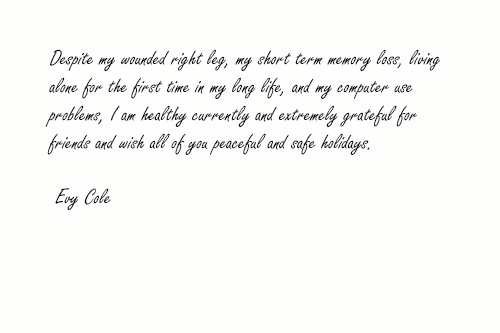 Despite my wounded right leg, my short term memory loss, living
alone for the first time in my long life, and my computer use
problems, I am healthy currently and extremely grateful for
friends and wish all of you peaceful and safe holidays.
Evy Cole